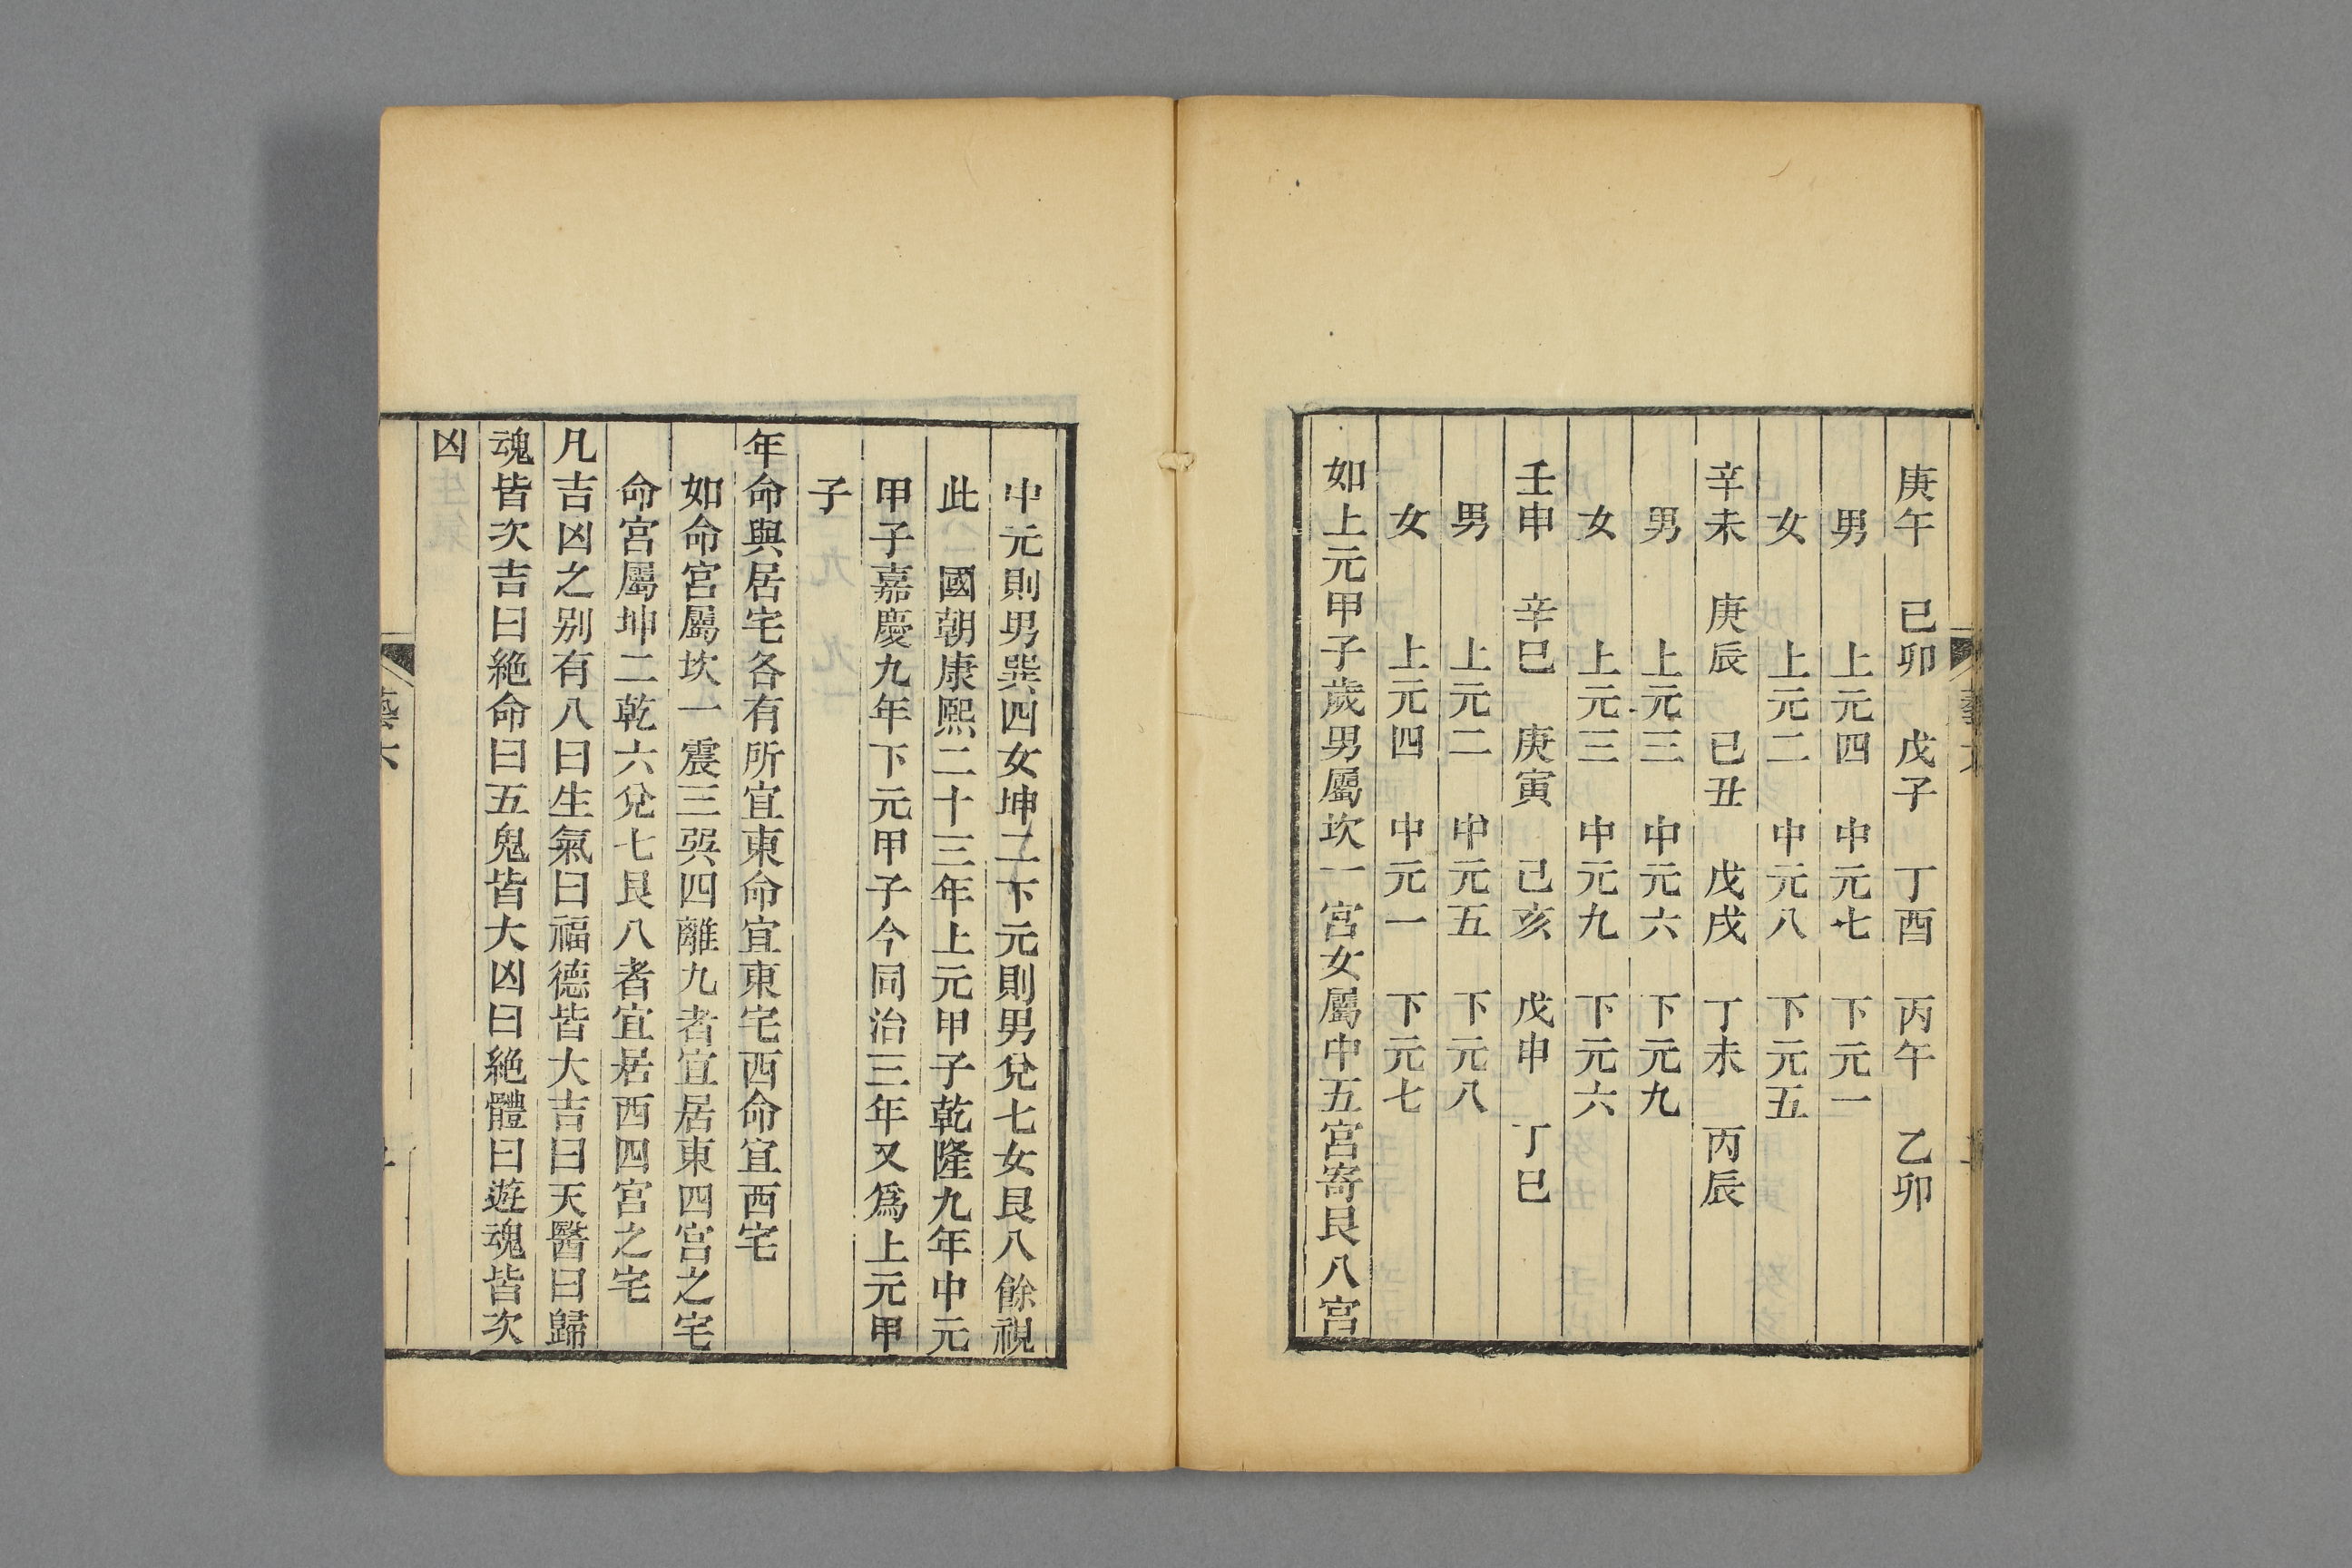 庚午　己卯　戊子　丁酉　丙午　乙卯
男　上元四　中元七　下元一
女　上元二　中元八　下元五
辛未　庚辰　己丑　戊戌　丁未　丙辰
男　上元三　中元六　下元九
女　上元三　中元九　下元六
壬申　辛巳　庚寅　己亥　戊申　丁巳
男　上元二　中元五　下元八
女　上元四　中元一　下元七
如上元甲子歲男屬坎一宮女屬中五宮寄艮八宮
中元則男巽四女坤二下元則男兌七女艮八餘視
此　國朝康熙二十三年上元甲子乾隆九年中元
甲子嘉慶九年下元甲子今同治三年又爲上元甲
子
年命與居宅各有所宜東命宜東宅西命宜西宅
如命宮屬坎一震三巽四離九者宜居東四宮之宅
命宮屬坤二乾六兌七艮八者宜居西四宮之宅
凡吉凶之别有八曰生氣曰福德皆大吉曰天醫曰歸
魂皆次吉曰絶命曰五鬼皆大凶曰絶體曰遊魂皆次
凶